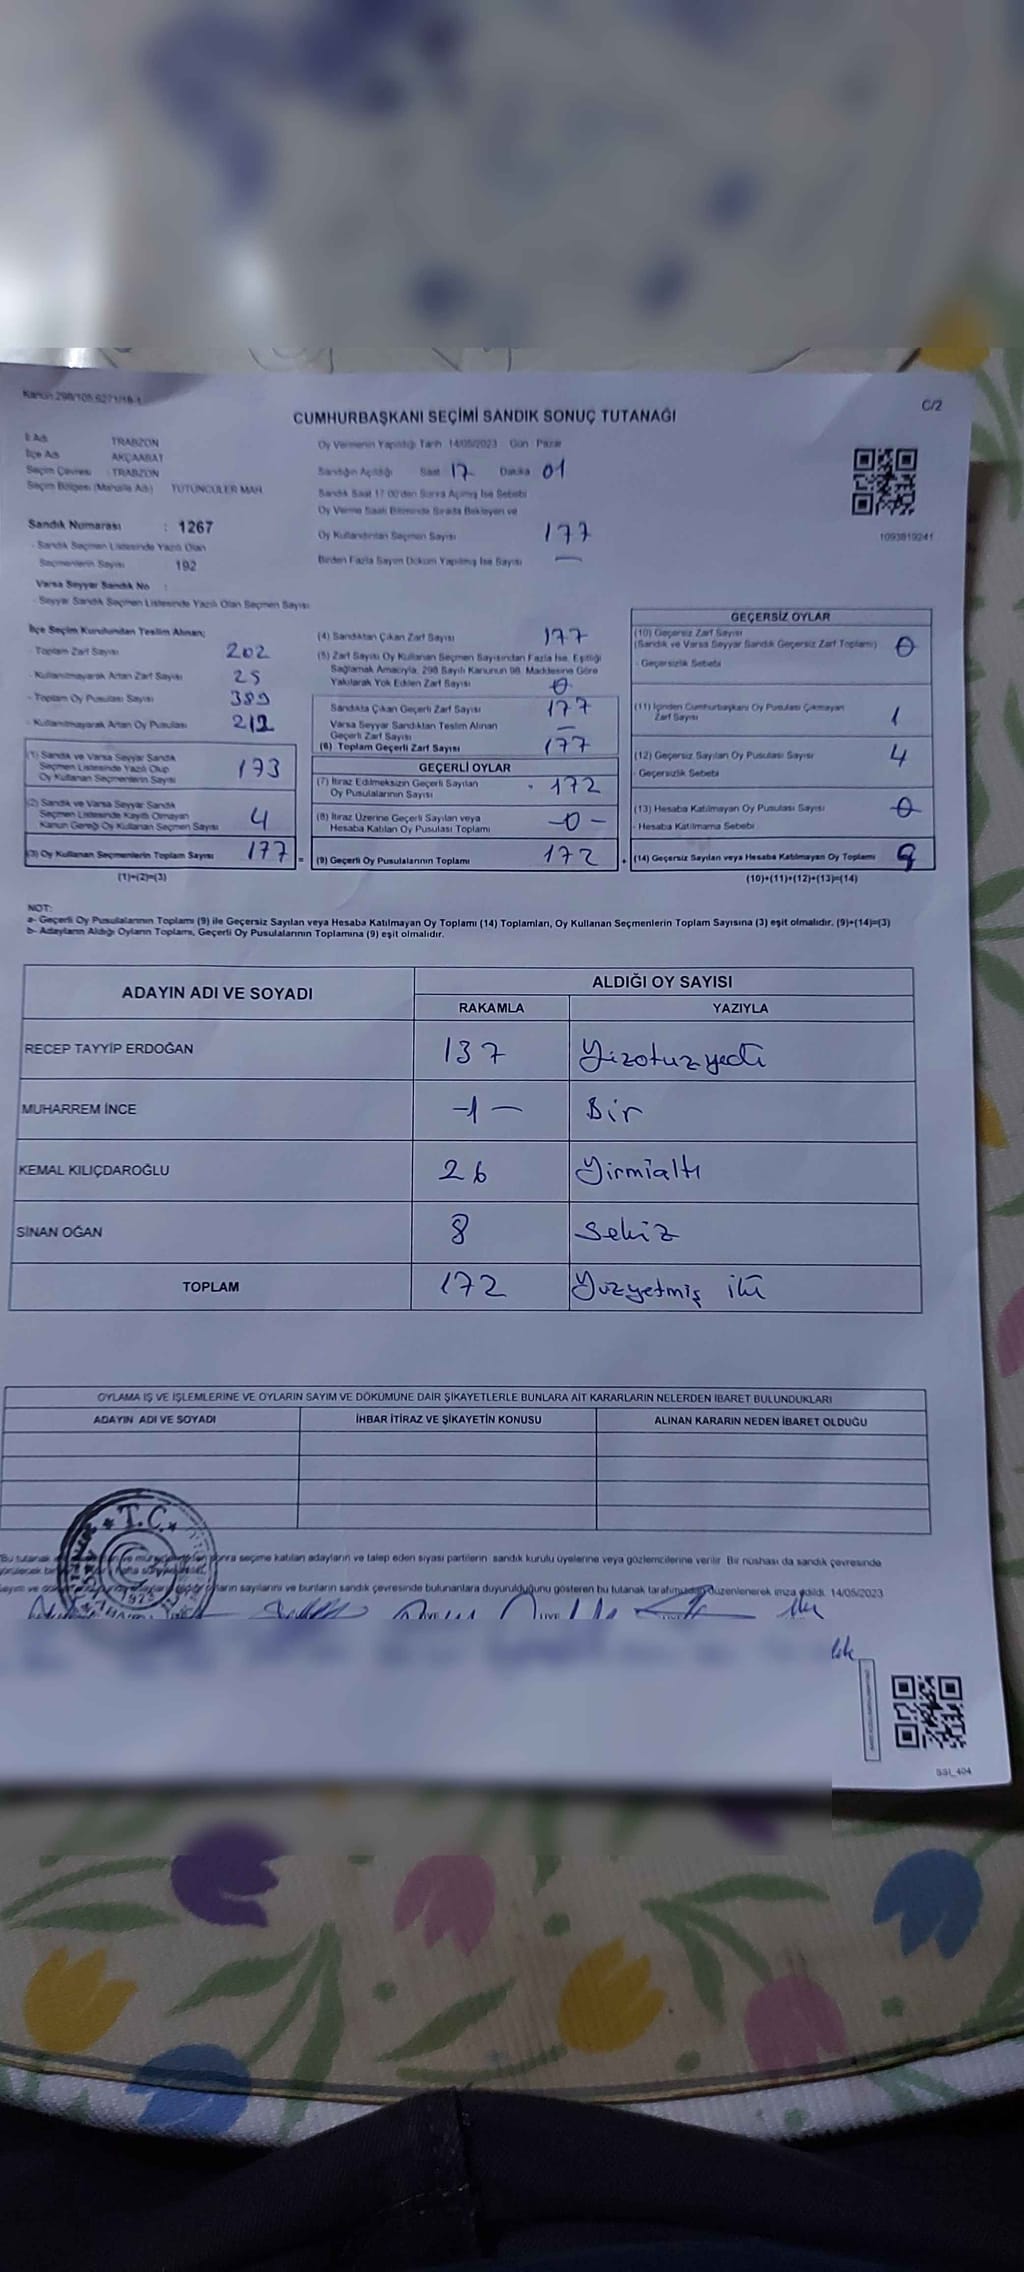 Kanun 298/105,6271/16-1
C/2
CUMHURBAŞKANI SEÇİMİ SANDIK SONUÇ TUTANAĞI
İl Adı TRABZON
İlçe Adı AKÇAABAT
Seçim Çevresi : TRABZON
Seçim Bölgesi (Mahalle Adı) TÜTÜNCÜLER MAH.
Oy Vermenin Yapıldığı Tarih 14/05/2023 Gün : Pazar
Sandığın Açıldığı Saat 17 Dakika 01
Sandık Saat 17:00'den Sonra Açılmış İse Sebebi
Oy Verme Saati Bitiminde Sırada Bekleyen ve
Oy Kullandırılan Seçmen Sayısı 177
Birden Fazla Sayım Döküm Yapılmış İse Sayısı —
1093819241
Sandık Numarası : 1267
- Sandık Seçmen Listesinde Yazılı Olan
Seçmenlerin Sayısı 192
Varsa Seyyar Sandık No :
- Seyyar Sandık Seçmen Listesinde Yazılı Olan Seçmen Sayısı:
İlçe Seçim Kurulundan Teslim Alınan;
- Toplam Zarf Sayısı 202
- Kullanılmayarak Artan Zarf Sayısı 25
- Toplam Oy Pusulası Sayısı 389
- Kullanılmayarak Artan Oy Pusulası 212
(1) Sandık ve Varsa Seyyar Sandık
Seçmen Listesinde Yazılı Olup
Oy Kullanan Seçmenlerin Sayısı 173
(2) Sandık ve Varsa Seyyar Sandık
Seçmen Listesinde Kayıtlı Olmayan
Kanun Gereği Oy Kullanan Seçmen Sayısı 4
(3) Oy Kullanan Seçmenlerin Toplam Sayısı 177
(1)+(2)=(3)
(4) Sandıktan Çıkan Zarf Sayısı 177
(5) Zarf Sayısı Oy Kullanan Seçmen Sayısından Fazla İse, Eşitliği
Sağlamak Amacıyla, 298 Sayılı Kanunun 98. Maddesine Göre
Yakılarak Yok Edilen Zarf Sayısı 0
Sandıkta Çıkan Geçerli Zarf Sayısı 177
Varsa Seyyar Sandıktan Teslim Alınan
Geçerli Zarf Sayısı —
(6) Toplam Geçerli Zarf Sayısı 177
GEÇERLİ OYLAR
(7) İtiraz Edilmeksizin Geçerli Sayılan
Oy Pusulalarının Sayısı 172
(8) İtiraz Üzerine Geçerli Sayılan veya
Hesaba Katılan Oy Pusulası Toplamı -0-
= (9) Geçerli Oy Pusulalarının Toplamı 172
GEÇERSİZ OYLAR
(10) Geçersiz Zarf Sayısı
(Sandık ve Varsa Seyyar Sandık Geçersiz Zarf Toplamı) 0
- Geçersizlik Sebebi
(11) İçinden Cumhurbaşkanı Oy Pusulası Çıkmayan
Zarf Sayısı 1
(12) Geçersiz Sayılan Oy Pusulası Sayısı 4
- Geçersizlik Sebebi
(13) Hesaba Katılmayan Oy Pusulası Sayısı 0
- Hesaba Katılmama Sebebi
+ (14) Geçersiz Sayılan veya Hesaba Katılmayan Oy Toplamı
(10)+(11)+(12)+(13)=(14)
NOT:
a- Geçerli Oy Pusulalarının Toplamı (9) ile Geçersiz Sayılan veya Hesaba Katılmayan Oy Toplamı (14) Toplamları, Oy Kullanan Seçmenlerin Toplam Sayısına (3) eşit olmalıdır. (9)+(14)=(3)
b- Adayların Aldığı Oyların Toplamı, Geçerli Oy Pusulalarının Toplamına (9) eşit olmalıdır.
ADAYIN ADI VE SOYADI ALDIĞI OY SAYISI
RAKAMLA YAZIYLA
RECEP TAYYİP ERDOĞAN 137 Yüzotuzyedi
MUHARREM İNCE -1- Bir
KEMAL KILIÇDAROĞLU 26 Yirmialtı
SİNAN OĞAN 8 Sekiz
TOPLAM 172 Yüzyetmiş iki
OYLAMA İŞ VE İŞLEMLERİNE VE OYLARIN SAYIM VE DÖKÜMÜNE DAİR ŞİKAYETLERLE BUNLARA AİT KARARLARIN NELERDEN İBARET BULUNDUKLARI
ADAYIN ADI VE SOYADI İHBAR İTİRAZ VE ŞİKAYETİN KONUSU ALINAN KARARIN NEDEN İBARET OLDUĞU
T.C.
1923
Bu tutanak sonra seçime katılan adayların ve talep eden siyasi partilerin sandık kurulu üyelerine veya gözlemcilerine verilir. Bir nüshası da sandık çevresinde
Sayım ve oyların sayılarını ve bunların sandık çevresinde bulunanlara duyurulduğunu gösteren bu tutanak tarafımızdan düzenlenerek imza edildi. 14/05/2023
SSI_404